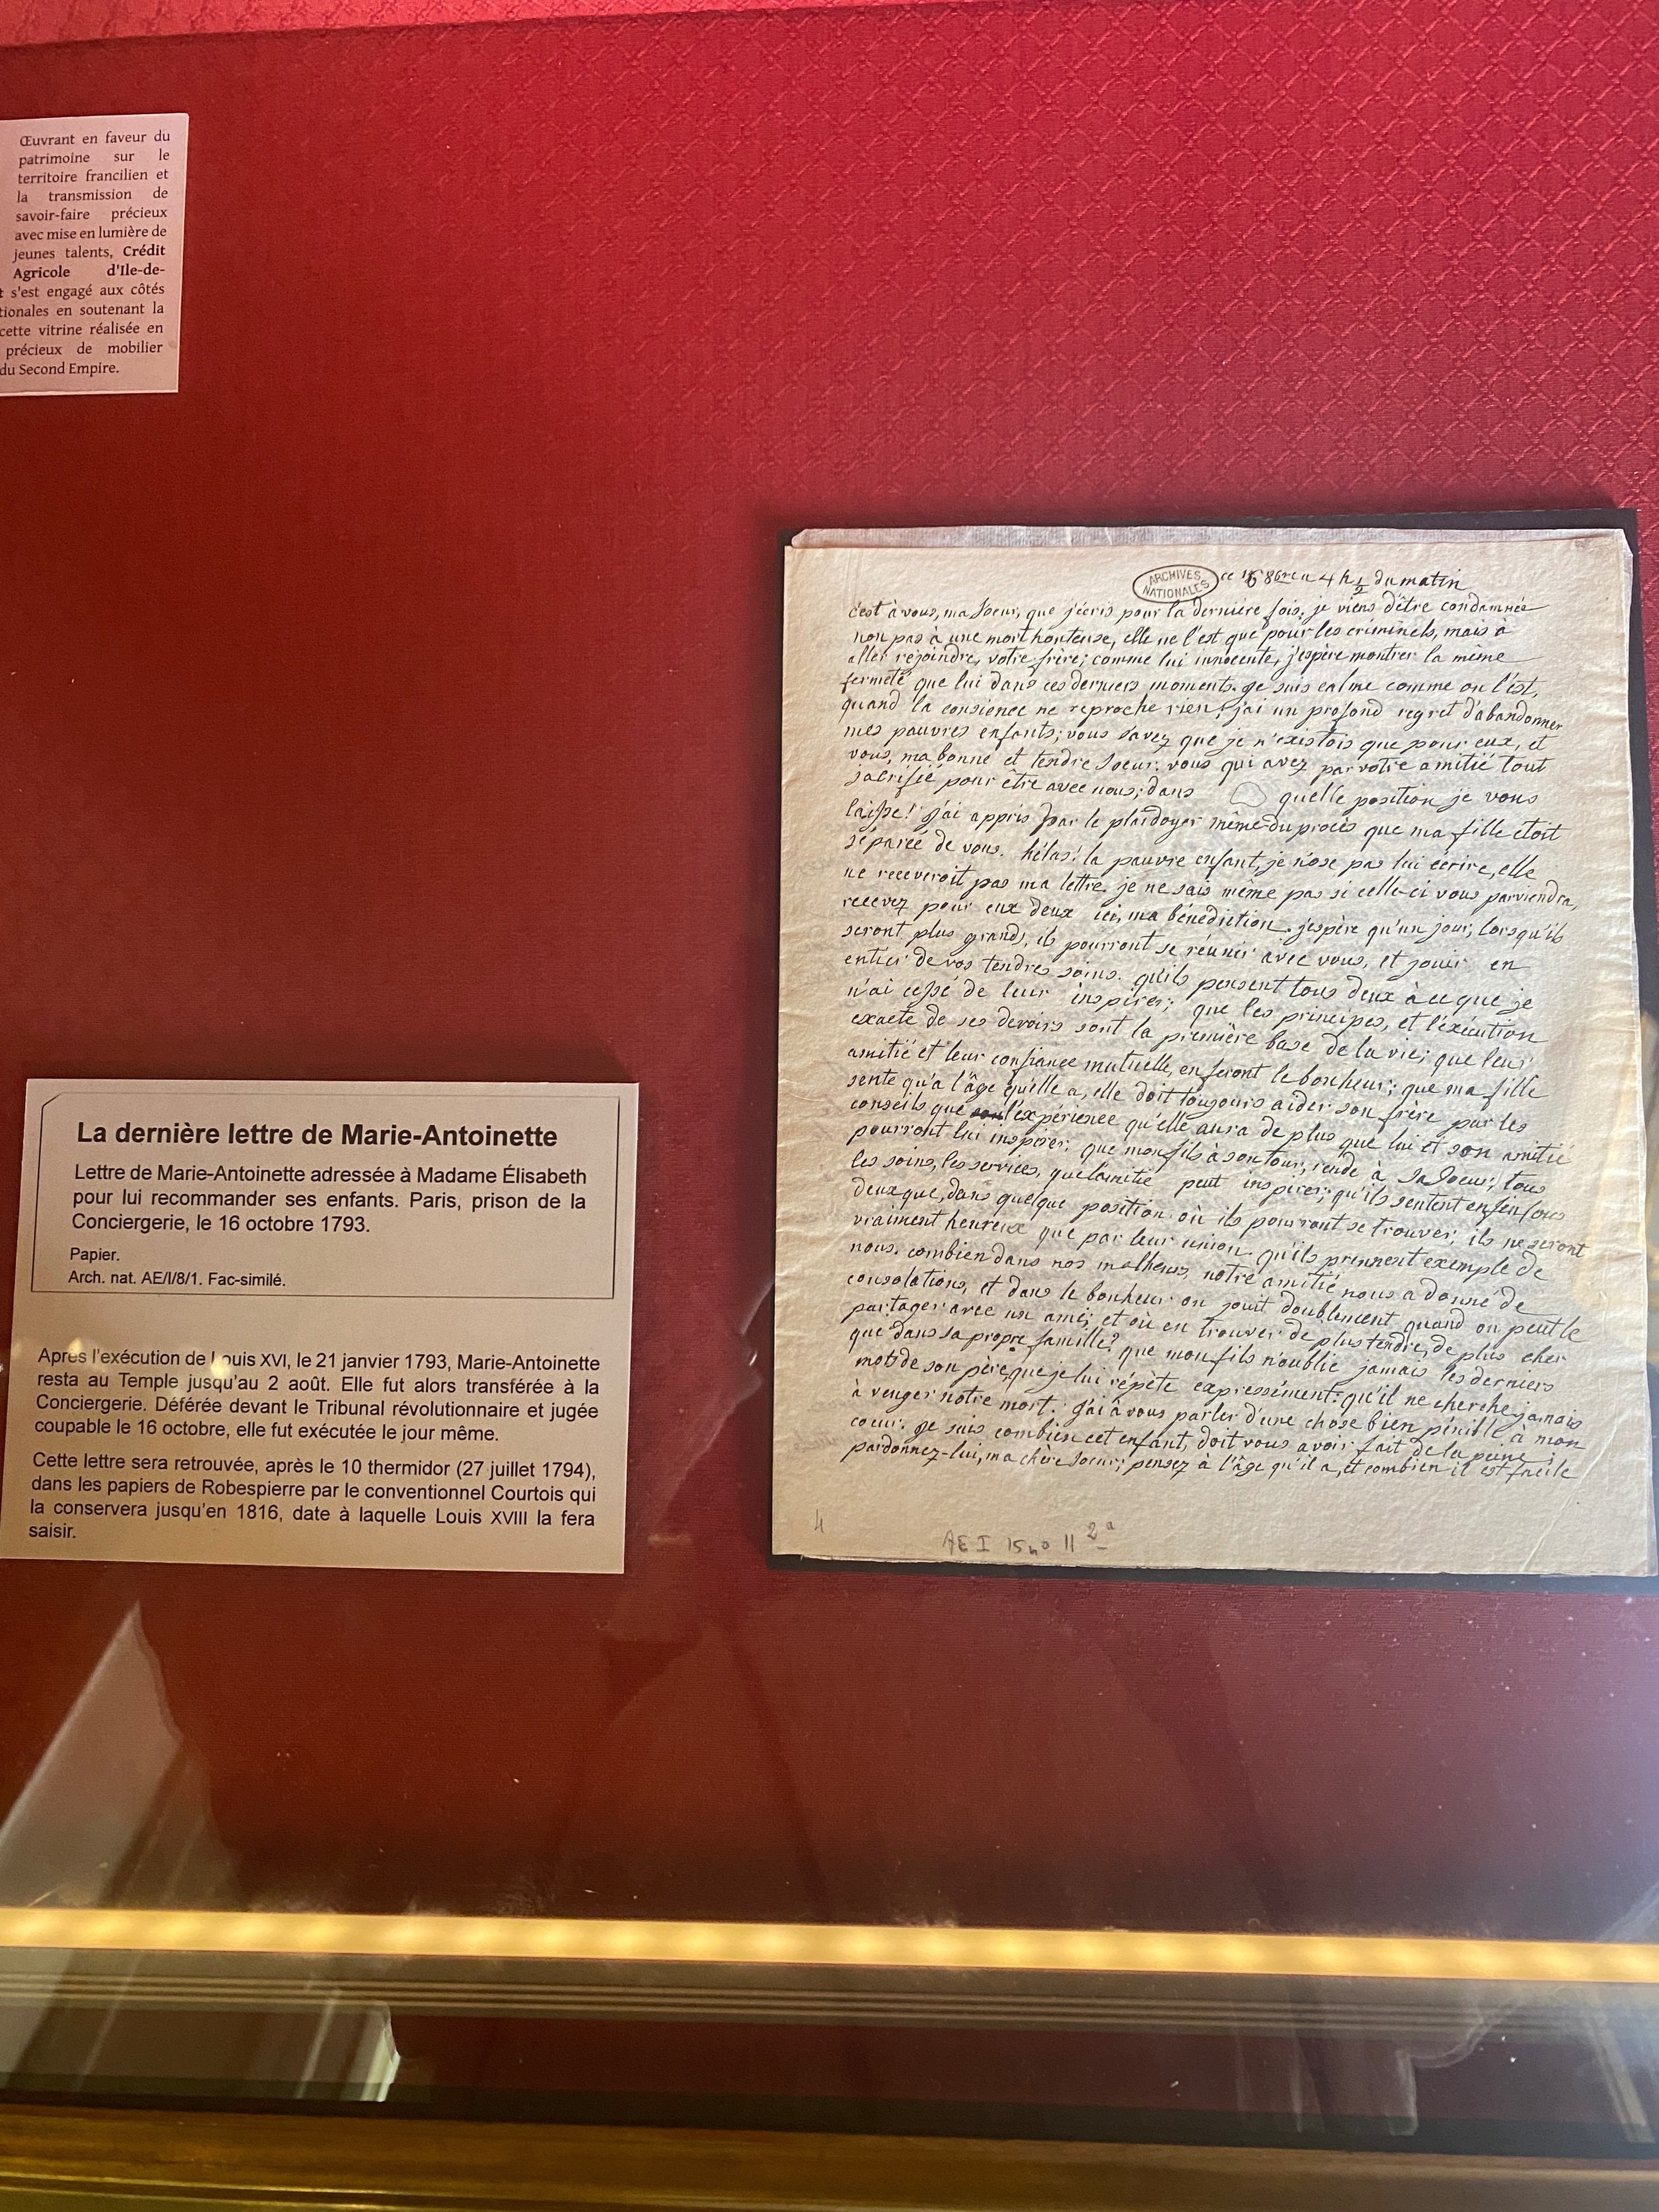 Œuvrant en faveur du
patrimoine sur le
territoire francilien et
la transmission de
savoir-faire précieux
avec mise en lumière de
jeunes talents, Crédit
Agricole d'Ile-de-
t s'est engagé aux côtés
tionales en soutenant la
cette vitrine réalisée en
précieux de mobilier
du Second Empire.
La dernière lettre de Marie-Antoinette
Lettre de Marie-Antoinette adressée à Madame Élisabeth
pour lui recommander ses enfants. Paris, prison de la
Conciergerie, le 16 octobre 1793.
Papier.
Arch. nat. AE/I/8/1. Fac-similé.
Après l'exécution de Louis XVI, le 21 janvier 1793, Marie-Antoinette
resta au Temple jusqu'au 2 août. Elle fut alors transférée à la
Conciergerie. Déférée devant le Tribunal révolutionnaire et jugée
coupable le 16 octobre, elle fut exécutée le jour même.
Cette lettre sera retrouvée, après le 10 thermidor (27 juillet 1794),
dans les papiers de Robespierre par le conventionnel Courtois qui
la conservera jusqu'en 1816, date à laquelle Louis XVIII la fera
saisir.
ARCHIVES
NATIONALES
ce 16 8bre a 4 h ½ du matin
c'est à vous, ma soeur, que j'écris pour la dernière fois. je viens d'être condamnée
non pas à une mort honteuse, elle ne l'est que pour les criminels, mais à
aller rejoindre votre frère; comme lui innocente, j'espère montrer la même
fermeté que lui dans ces derniers moments. je suis calme comme on l'est,
quand la consience ne reproche rien; j'ai un profond regret d'abandonner
mes pauvres enfants; vous savez que je n'existois que pour eux, et
vous, ma bonne et tendre soeur. vous qui avez par votre amitié tout
sacrifié pour être avec nous; dans quelle position je vous
laisse! j'ai appris par le plaidoyer même du procès que ma fille étoit
séparée de vous. hélas! la pauvre enfant, je n'ose pas lui écrire, elle
ne receveroit pas ma lettre. je ne sais même pas si celle-ci vous parviendra,
recevez pour eux deux ici, ma bénédiction. j'espère qu'un jour, lorsqu'ils
seront plus grands, ils pourront se réunir avec vous, et jouir en
entier de vos tendres soins. qu'ils pensent tous deux à ce que je
n'ai cessé de leur inspirer; que les principes, et l'exécution
exacte de ses devoirs sont la première base de la vie; que leur
amitié et leur confiance mutuelle, en feront le bonheur; que ma fille
sente qu'a l'âge qu'elle a, elle doit toujours aider son frère par les
conseils que l'expérience qu'elle aura de plus que lui et son amitié
pourront lui inspirer; que mon fils à son tour, rende à sa soeur, tous
les soins, les services, que l'amitié peut inspirer; qu'ils sentent enfin tous
deux que, dans quelque position où ils pourront se trouver, ils ne seront
vraiment heureux que par leur union. qu'ils prennent exemple de
nous. combien dans nos malheurs, notre amitié nous a donné de
consolations, et dans le bonheur on jouit doublement quand on peut le
partager avec un ami; et où en trouver de plus tendre, de plus cher
que dans sa propre famille? que mon fils n'oublie jamais les derniers
mots de son père, que je lui répète expressément: qu'il ne cherche jamais
à venger notre mort. j'ai à vous parler d'une chose bien pénible à mon
coeur. je sais combien cet enfant, doit vous avoir fait de la peine;
pardonnez-lui, ma chère soeur; pensez à l'âge qu'il a, et combien il est facile
4
AE I 15 no 11 2a